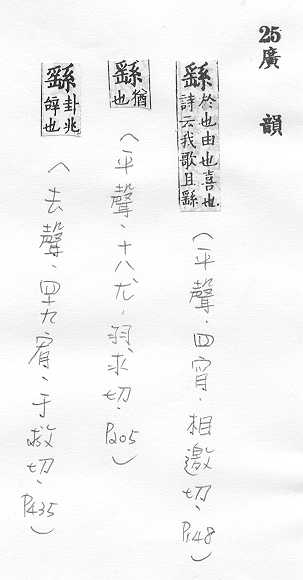 25廣韻
繇 於也由也喜也
詩云我歌且繇
(平聲、四宵、相邀切、P.148)
繇 猶
也
(平聲、十八尤、羽求切、P.205)
繇 卦兆
辭也
(去聲、四九宥、于救切、P.435)